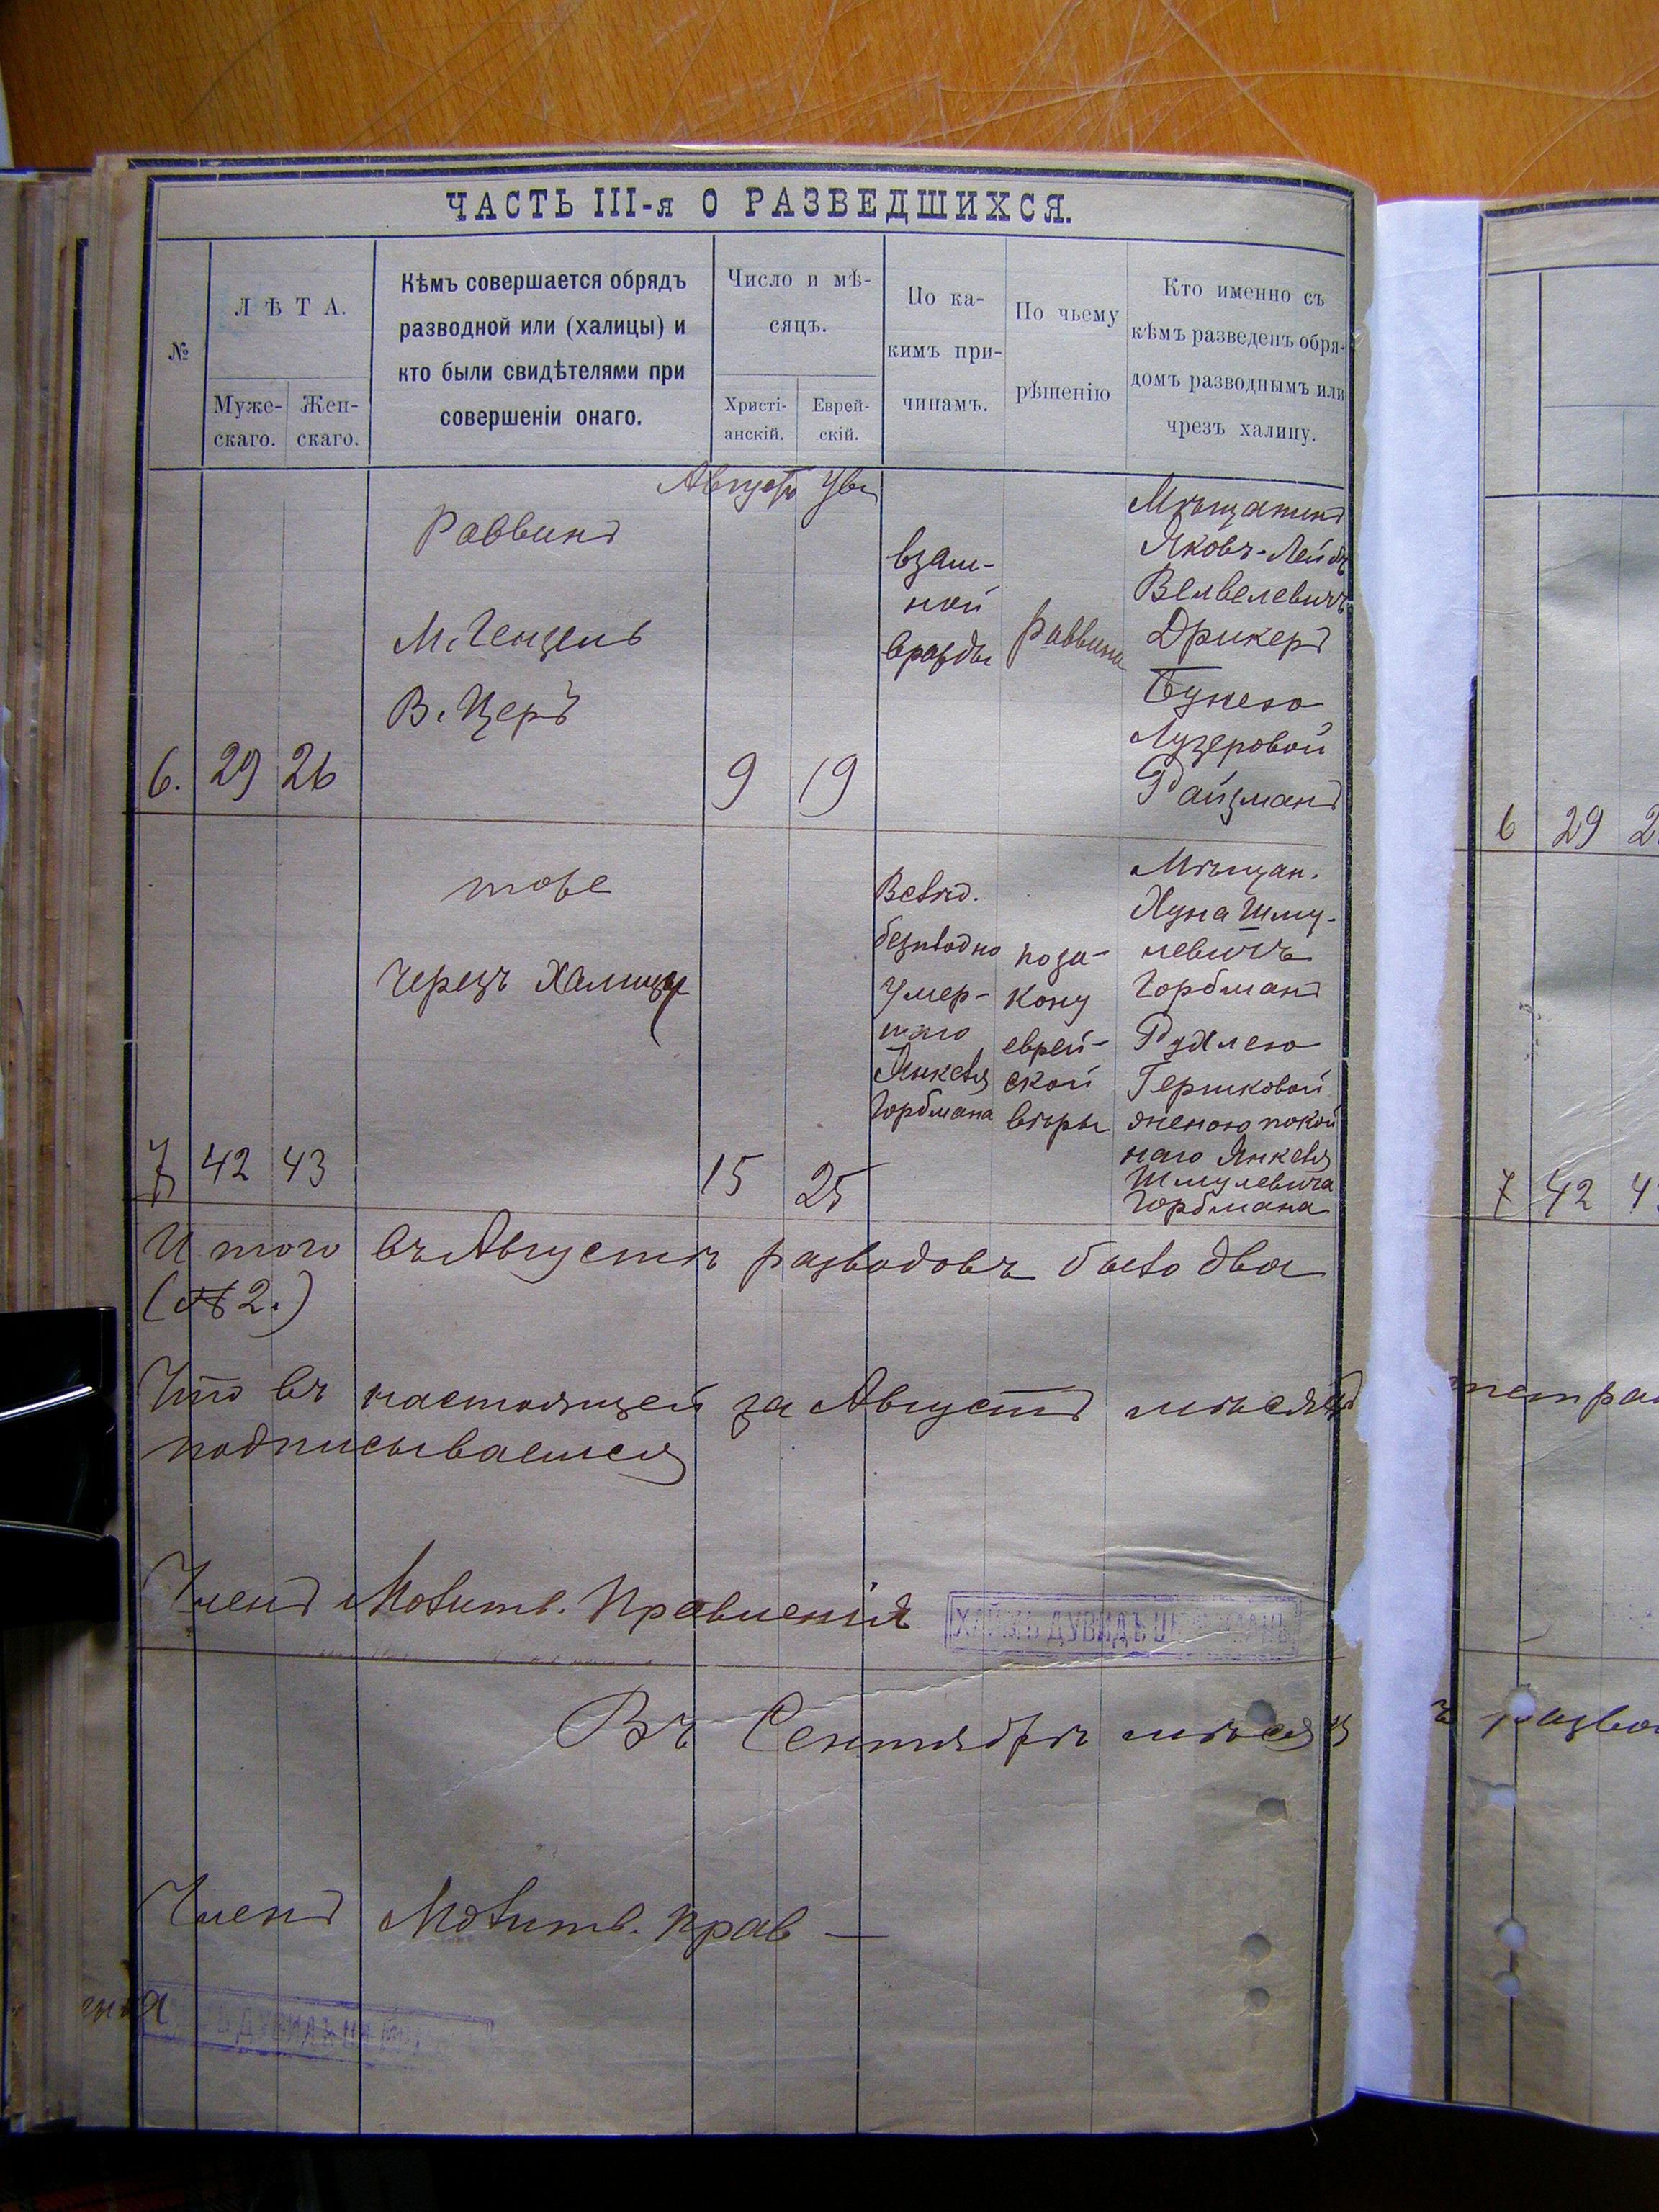 ЧАСТЬ III-я О РАЗВЕДШИХСЯ.
№
ЛѢТА.
Муже-
скаго.
Жен-
скаго.
Кѣмъ совершается обрядъ
разводной или (халицы) и
кто были свидѣтелями при
совершеніи онаго.
Число и мѣ-
сяцъ.
Христі-
анскій.
Еврей-
скій.
По ка-
кимъ при-
чинамъ.
По чьему
рѣшенію
Кто именно съ
кѣмъ разведенъ обря-
домъ разводнымъ или
чрезъ халицу.
Августъ
6. 29 26
Раввинъ
М. Генцель
В. Церъ
9 19
взаим-
ной
вражды
Раввина
Мѣщанинъ
Яковъ-Лейбъ
Велвелевичъ
Дрикеръ
Бунею
Лузеровой
Файзманъ
7 42 43
тоже
Черезъ Халицу
15 25
Вслѣд.
безплодно
умер-
шаго
Янкеля
Горбмана
по за-
кону
еврей-
ской
вѣры
Мѣщан.
Хуна Шму-
левичъ
Горбманъ
Рухлею
Гершковой
женою покой
наго Янкеля
Шмулевича
Горбмана
И того въ Августѣ разводовъ было два
(№ 2.)
Что въ настоящей за Августъ мѣсяцъ
подписываемся
Членъ Молитв. Правленія
ДУВИДЪ
Въ Сентябрѣ мѣсяц
Членъ Молитв. Прав —
ДУВИДЪ
6 29 2
7 42 4
тетра
разво